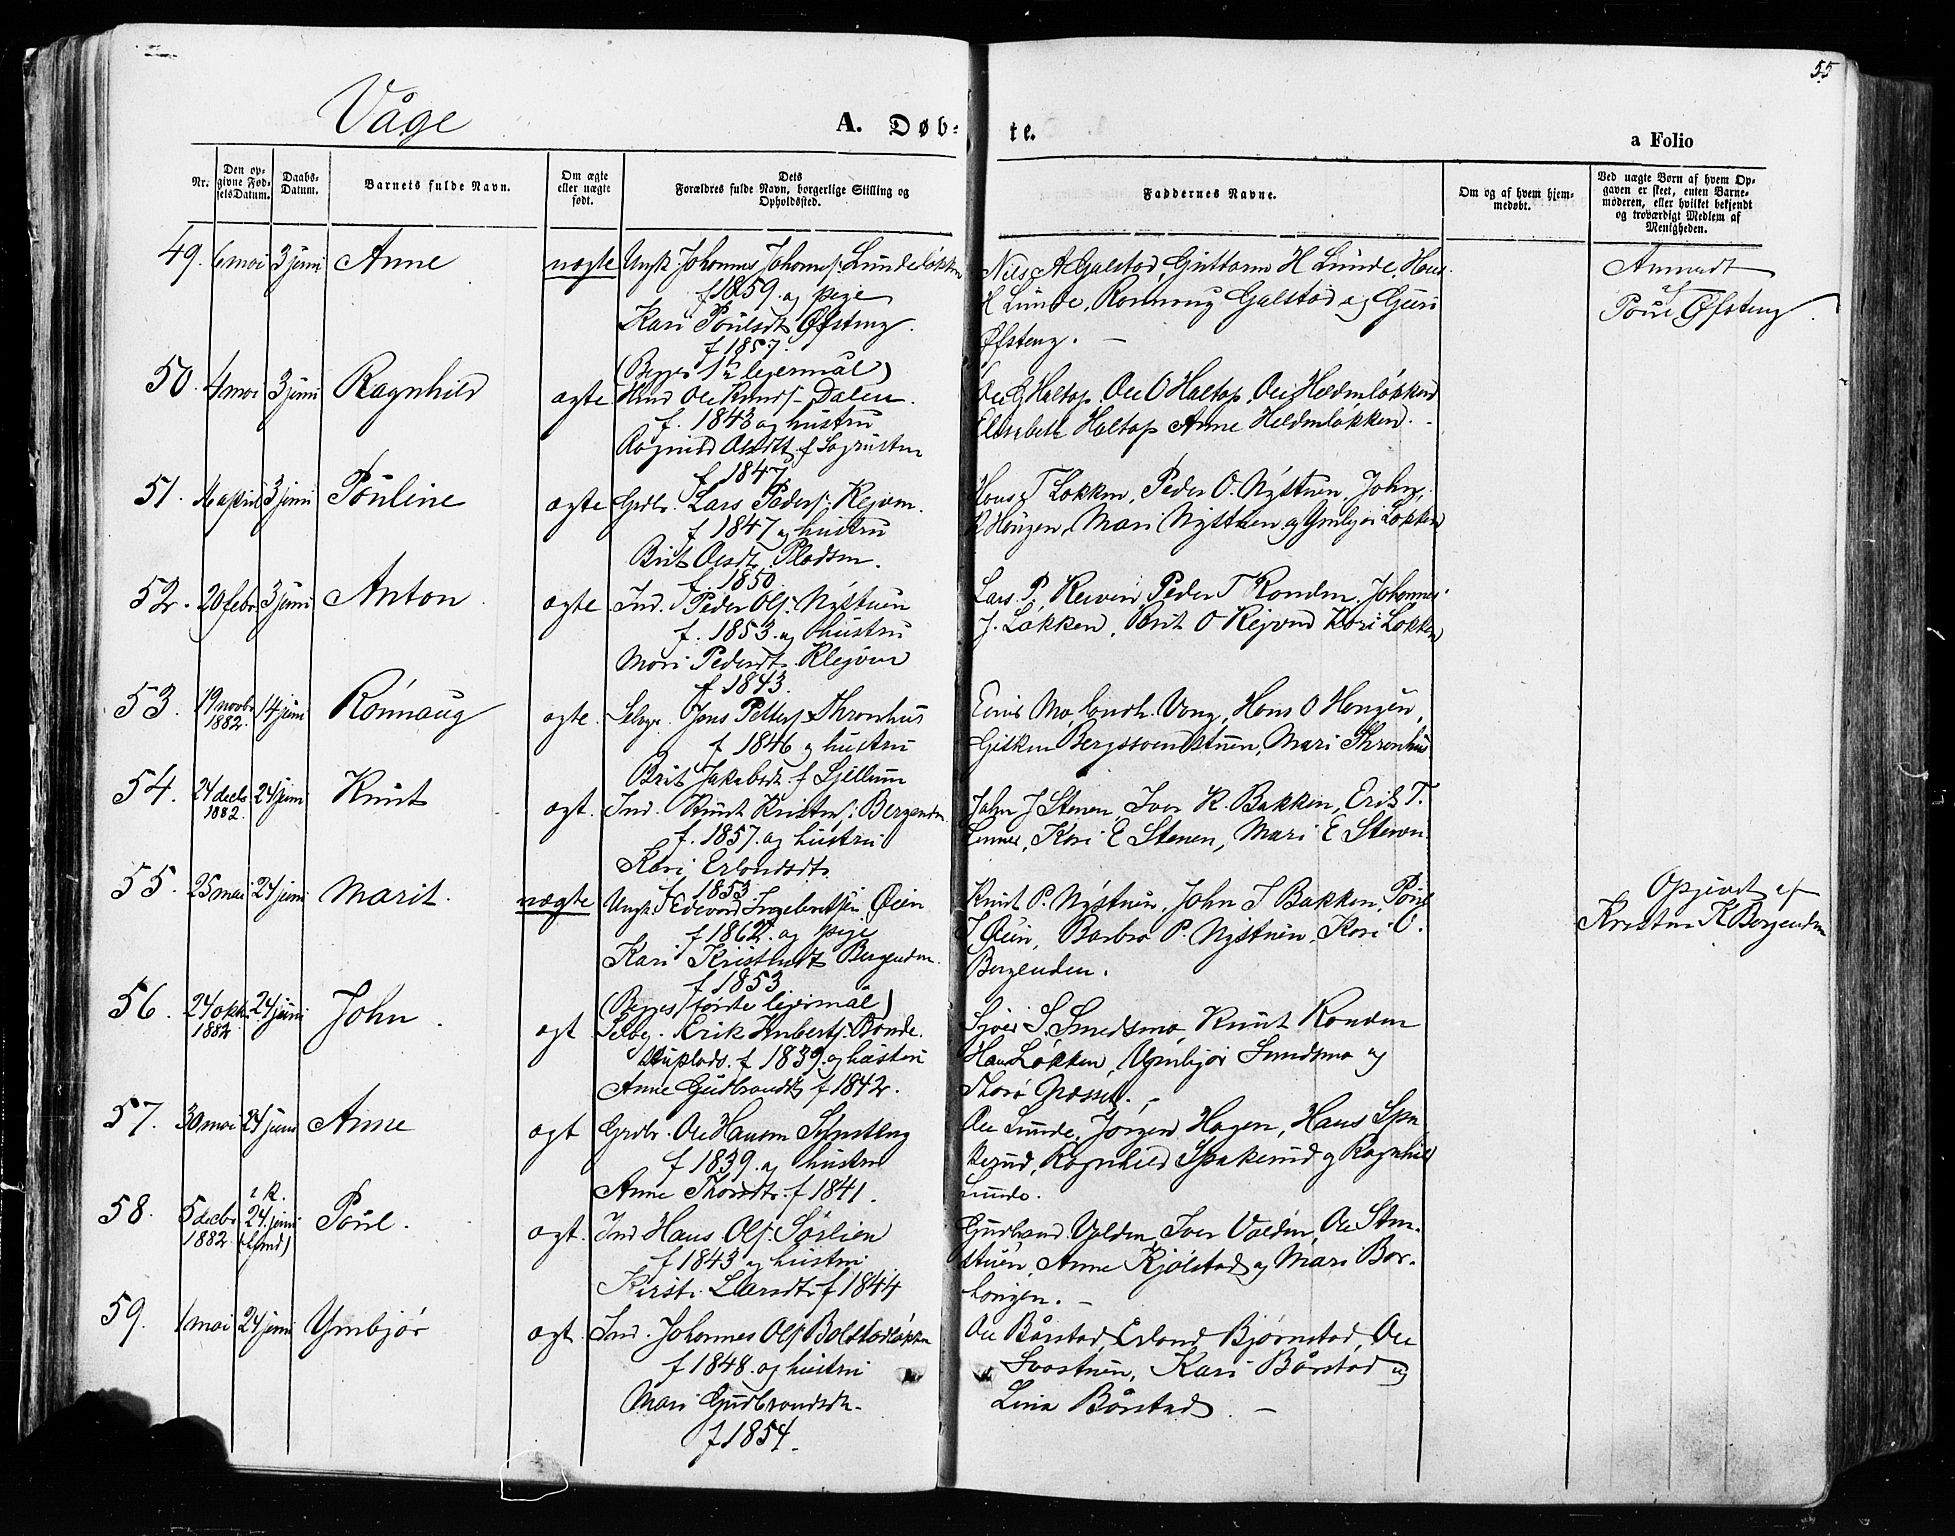 55
Våge
A. Døb-
te.
a Folio
Nr.
Den op-
givne Fød-
selsDatum.
Daabs-
Datum.
Barnets fulde Navn.
Om ægte
eller uægte
født.
Dets
Forældres fulde Navn, borgerlige Stilling og
Opholdssted.
Faddernes Navne.
Om og af hvem hjem-
medøbt.
Ved uægte Børn af hvem Op-
gaven er skeet, enten Barne-
moderen, eller hvilket bekjendt
og troværdigt Medlem af
Menigheden.
49. 6 mai 3 juni Anne uægte Ungk. Johannes Johannes. Lundeløkken
f 1859. og pige
Kari Poulsdt Øfsteng.
f 1857.
(Begges 1ste leiermål)
Nils A Galstad, Guttorm H Lunde, Hans
H Lunde, Ronnaug Galstad og Guri
Øfsteng. —
Anmeldt
af
Poul Øfsteng.
50. 4 mai 3 juni Ragnhild ægte Ind Ole Knuds. Dalen.
f. 1843 og hustru
Ragnild Olsdt f
f 1847
Ole Haltop Ole O Haltop Ole Heldmløkken
Elisabeth Haltop Anne Heldmløkken. -
51. april 3 juni Pouline ægte Grdbr. Lars Peders. Klejven.
f 1847 og hustru
Brit Olsdt Pladsen.
f. 1850.
Hans T Løkken, Peder O. Nystuen, John
R Haugen, Mari Nystuen og Ymbjør Løkken
52. 20 febr. 3 juni Anton ægte Ind. Peder Ols. Nystuen
f. 1853. og hustru
Mari Pedersdt. Klejven
f 1843.
Lars P. Kleiven, Peder T Randen, Johannes
J. Løkken, Brit O Klejven Kari Løkken
53. 19 novbr 1882. 14 juni Rönnaug ægte. Selvej. Jens Petters. Thronhus
f 1846 og hustru
Brit Jakobsdt. f Sjellum
Mo, Vang, Hans O Haugen,
Bergsvendstuen, Mari Thronhus
54. 24 decbr 1882. 24 juni Knut ægt. Ind. Knut Kristens. Bergenden.
f. 1857. og hustru
Kari Erlandsdt.
f 1853.
John J Stenen, Iver K. Bakken, Erik T.
Kari E Stenen, Mari E Stenen
55. 25 mai 24 juni Marit. uægte Ungk. Edevard Ingebretsen Øien
f 1862. og pige
Kari Kristensdt Bergenden.
f 1853
(Begges første leiermål)
Knut P. Nystuen, John T Bakken, Poul
I Øien, Barbro P. Nystuen, Kari O.
Bergenden.
Opgivet af
Kristen K Bergenden
56. 24 oktbr 1882. 24 juni John. ægt Selvej. Erik Anberts. Bonde.
f 1839. og hustru
Anne Gudbrandsdt f 1842.
S. Smedsmo, Knut Randen
Hans Løkken, Ymbjør Smedsmo og
57. 30 mai 24 juni Anne ægt Grdbr. Ole Hansen Synsteng
f 1839. og hustru
Anne Thorsdt. f 1841.
Ole Lunde, Jørgen Hagen, Hans Spa
kerud, Ragnhild Spakerud og Ragnhild
Lunde.
58. 5 decbr 1882. i K. 24. juni Poul. ægt. Ind Hans Ols. Sørlien
f 1843 og hustru
Kirsti Larsdt. f 1844
Gudbrand Valden, Iver Valden, Ole Sten-
stuen, Anne Kjølstad og Mari Bor-
haugen. —
59. 1 mai 24 juni Ymbjør ægt. Ind. Johannes Ols. Bolstadløkken
f 1848. og hustru
Mari Gudbrandsdt.
f 1854.
Ole Bårstad, Erland Bjørnstad, Ole
Svastuen, Kari Bårstad og
Lina Bårstad. —